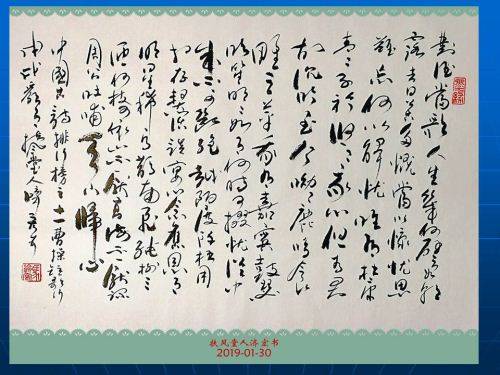 對酒當歌人生幾何譬如朝
露去日苦多慨當以慷憂思
難忘何以解憂唯有杜康
青青子衿悠悠我心但為君
故沉吟至今呦呦鹿鳴食
野之苹我有嘉賓鼓瑟
吹笙明明如月何時可掇憂從中
來不可斷絕越陌度阡枉用
相存契闊談讌心念舊恩月
明星稀烏鵲南飛繞樹三
匝何枝可依山不厭高海不厭深
周公吐哺天下歸心
中國古詩排行榜之十一曹操短歌行
戊戌歲冬月扶風堂人濟宏書
扶风堂人济宏书
2019-01-30